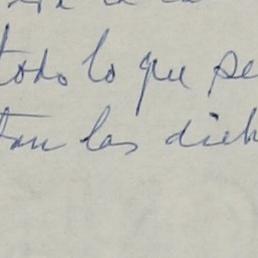 todo lo que se
tan las dich